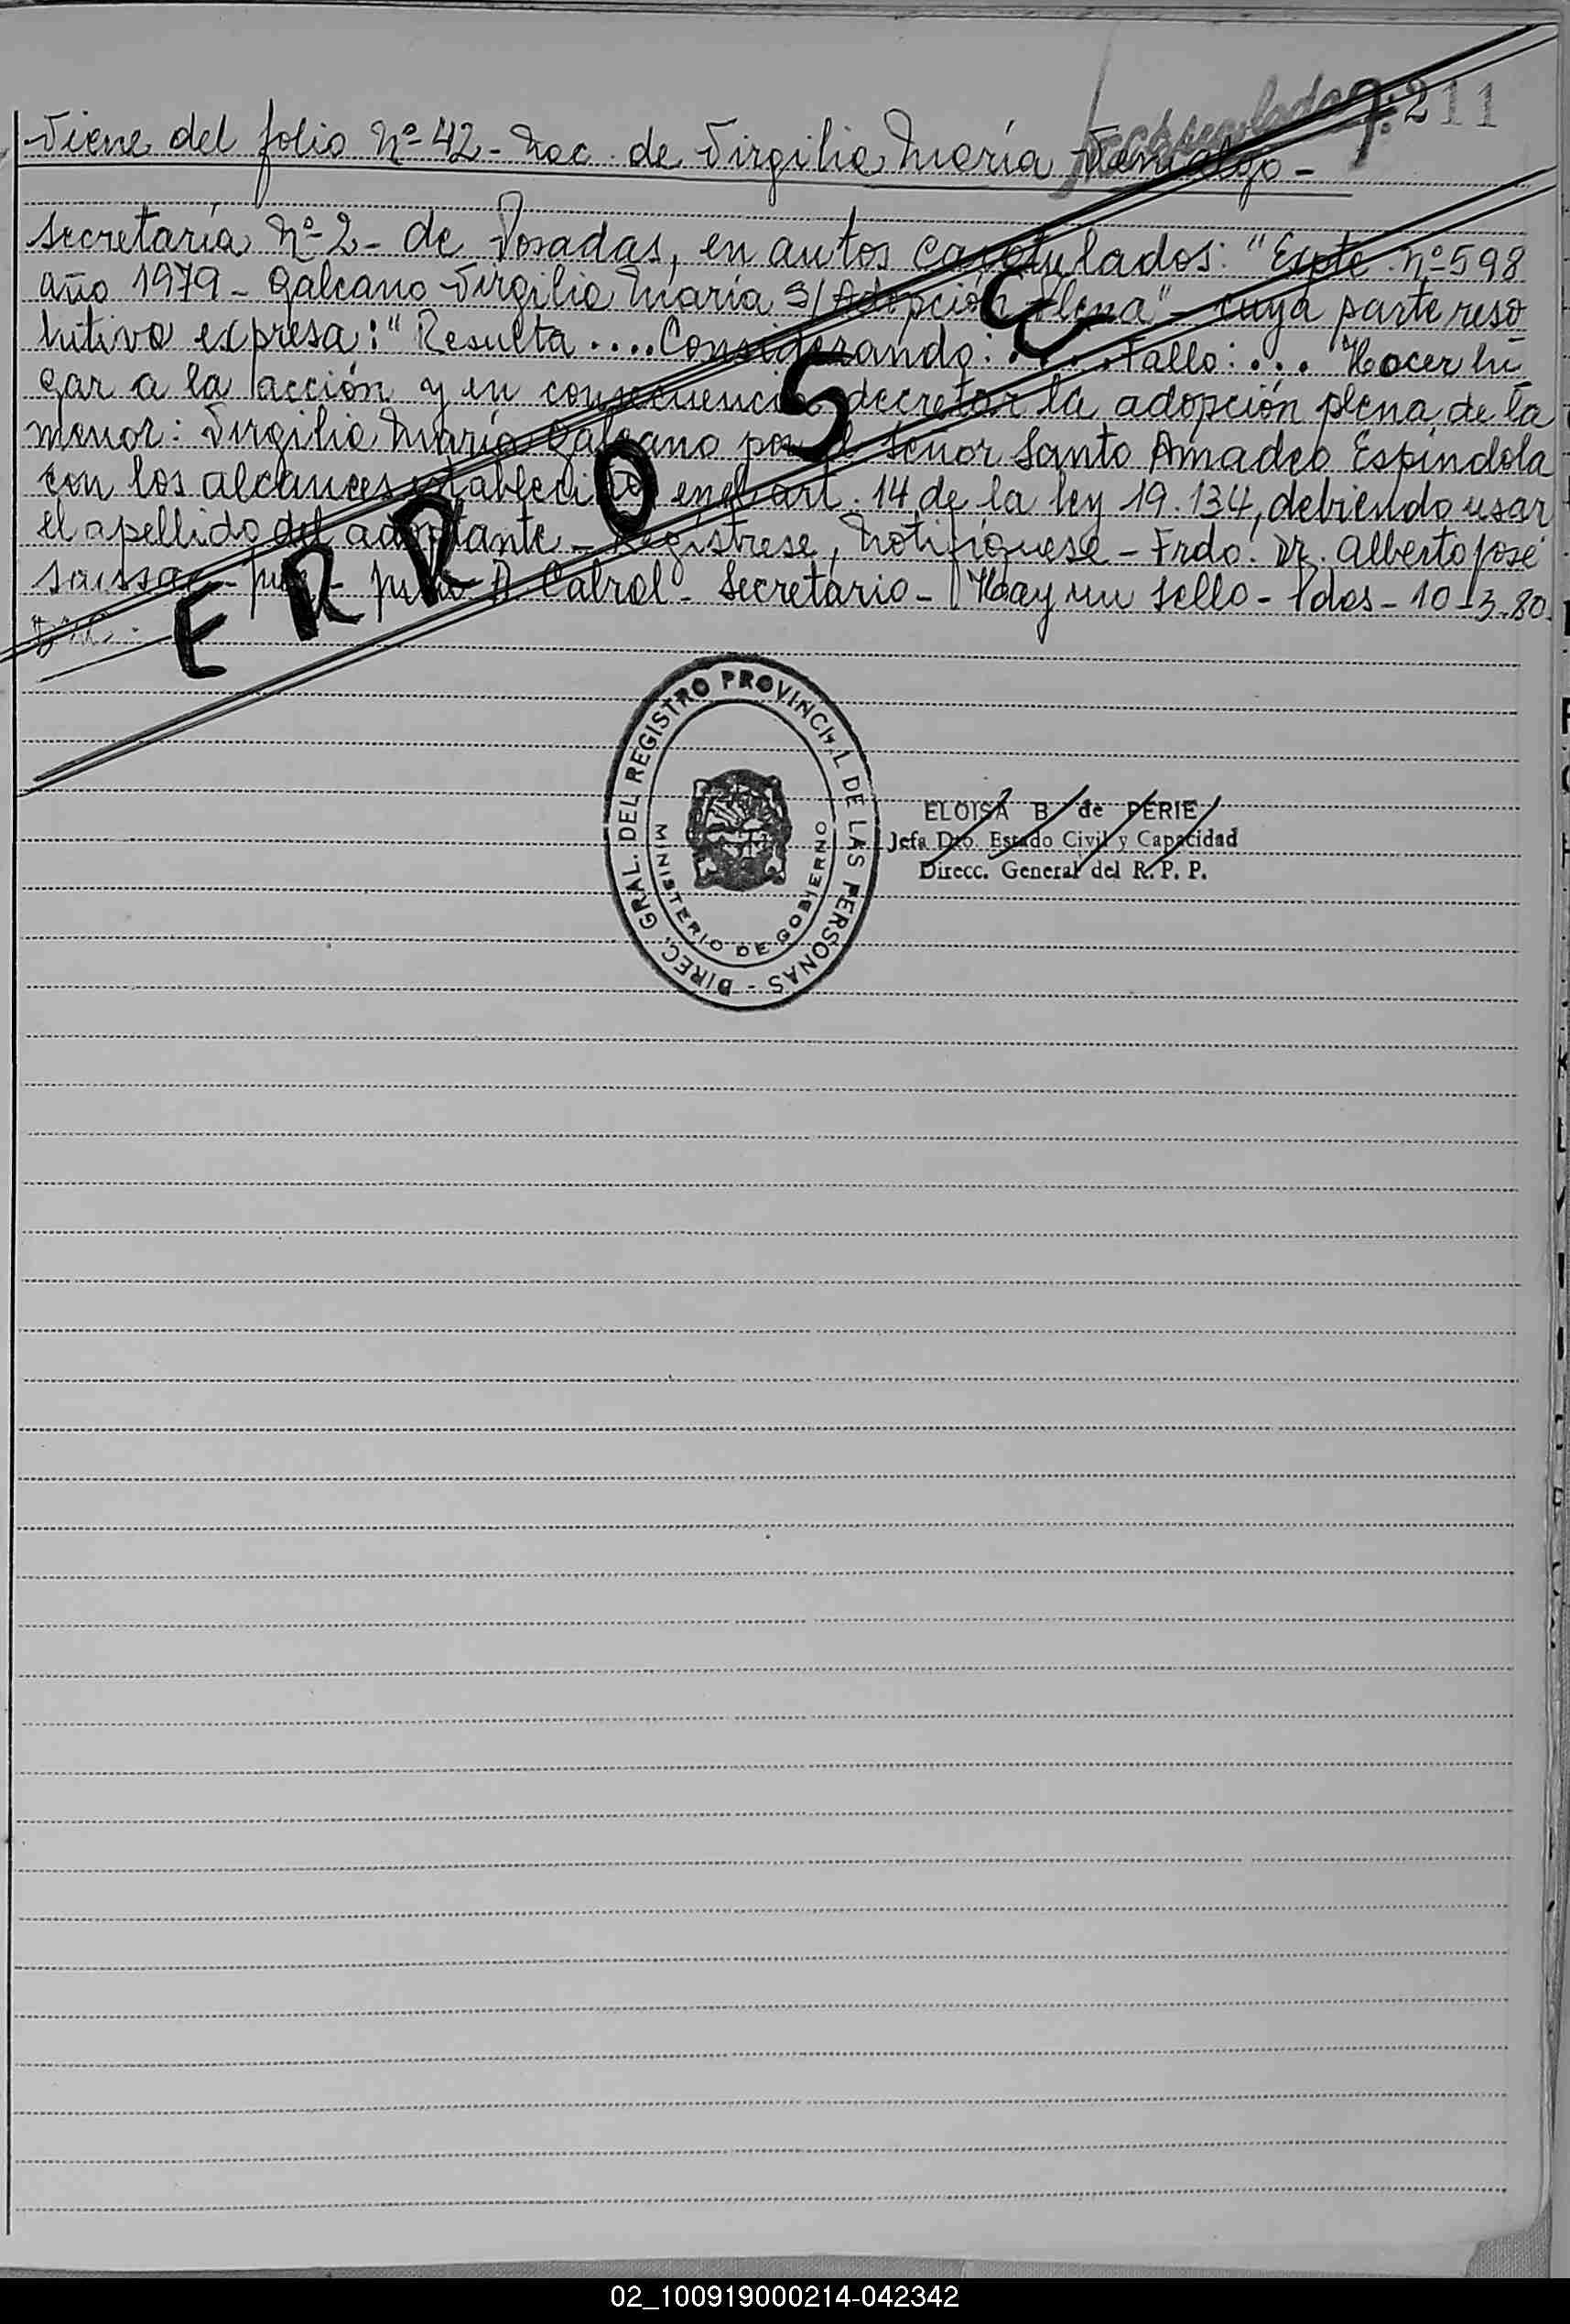 211
Viene del folio Nº 42 - Nac. de Virgilia María
Secretaría Nº 2 - de Posadas, en autos caratulados: "Expte. Nº 598
año 1979 - Galeano Virgilia María S/ Adopción Plena" - cuya parte reso
lutiva expresa: "Resulta .... Considerando: ..... Fallo: ... Hacer lu
gar a la acción y en consecuencia decretar la adopción plena de la
menor: Virgilia María Galeano por el Señor Santo Amadeo Espíndola
con los alcances establecido en el art. 14 de la ley 19.134, debiendo usar
el apellido del adoptante - Regístrese, Notifíquese - Frdo: Dr. Alberto José
Cabral - Secretario - Hay un sello - Pdas - 10-3-80.
ERROSE
DIREC. GRAL. DEL REGISTRO PROVINCIAL DE LAS PERSONAS -
MINISTERIO DE GOBIERNO
ELOISA B de PERIE
Jefa Dto. Estado Civil y Capacidad
Direcc. General del R. P. P.
02_100919000214-042342